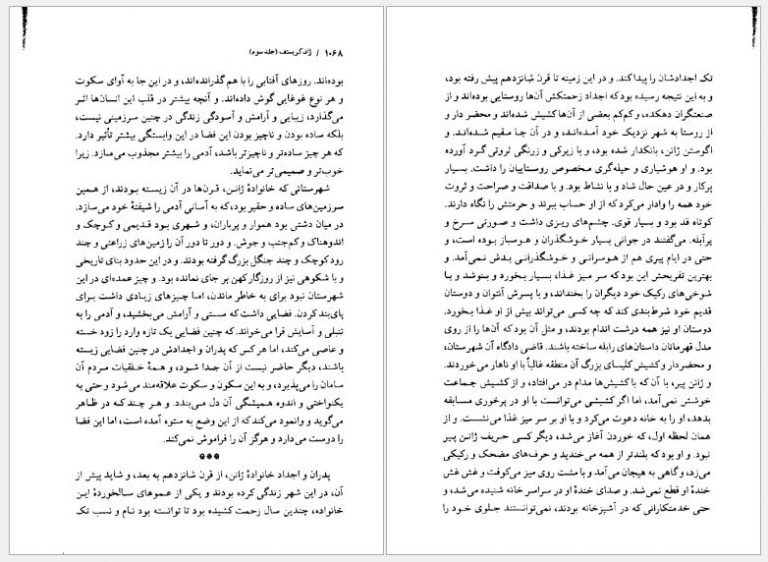 ۱۰۶۸ / ژان کریستف (جلد سوم)
بوده‌اند. روزهای آفتابی را با هم گذرانده‌اند، و در این جا به آوای سکوت
و هر نوع غوغایی گوش داده‌اند. و آنچه بیشتر در قلب این انسان‌ها اثر
می‌گذارد، زیبایی و آرامش و آسودگی زندگی در چنین سرزمینی نیست،
بلکه ساده بودن و ناچیز بودن این فضا در این وابستگی بیشتر تأثیر دارد.
که هر چیز ساده‌تر و ناچیزتر باشد، آدمی را بیشتر مجذوب می‌سازد. زیرا
خوب‌تر و صمیمی‌تر می‌نماید.
شهرستانی که خانوادهٔ ژانن، قرن‌ها در آن زیسته بودند، از همین
سرزمین‌های ساده و حقیر بود، که به آسانی آدمی را شیفتهٔ خود می‌سازد.
در میان دشتی بود هموار و پرباران، و شهری بود قدیمی و کوچک و
اندوهناک و کم‌جنب و جوش. و دور تا دور آن را زمین‌های زراعتی و چند
رود کوچک و چند جنگل بزرگ گرفته بودند. و در این حدود بنای تاریخی
و با شکوهی نیز از روزگار کهن بر جای نمانده بود. و چیز عمده‌ای در این
شهرستان نبود برای به خاطر ماندن، اما چیزهای زیادی داشت برای
پای‌بند کردن. فضایی داشت که سستی و آرامش می‌بخشید، و آدمی را به
تنبلی و آسایش فرا می‌خواند. که چنین فضایی یک تازه وارد را زود خسته
و عاصی می‌کند، اما هر کس که پدران و اجدادش در چنین فضایی زیسته
باشند، دیگر حاضر نیست از آن جدا شود، و همهٔ خلقیات مردم آن
سامان را می‌پذیرد، و به این سکون و سکوت علاقه‌مند می‌شود و حتی به
یکنواختی و اندوه همیشگی آن دل می‌بندد. و هر چند که در ظاهر
می‌گوید و وانمود می‌کند که از این وضع به ستوه آمده است، اما این فضا
را دوست می‌دارد و هرگز آن را فراموش نمی‌کند.
***
پدران و اجداد خانوادهٔ ژانن، از قرن شانزدهم به بعد، و شاید پیش از
آن، در این شهر زندگی کرده بودند و یکی از عموهای سالخوردهٔ این
خانواده، چندین سال زحمت کشیده بود تا توانسته بود نام و نسب تک
تک اجدادشان را پیدا کند. و در این زمینه تا قرن شانزدهم پیش رفته بود،
و به این نتیجه رسیده بود که اجداد زحمتکش آن‌ها روستایی بوده‌اند و از
صنعتگران دهکده، و کم‌کم بعضی از آن‌ها کشیش شده‌اند و محضر دار و
از روستا به شهر نزدیک خود آمده‌اند، و در آن جا مقیم شده‌اند. و
اگوستن ژانن، بانکدار شده بود، و با زیرکی و زرنگی ثروتی گرد آورده
بود. و او هوشیاری و حیله‌گری مخصوص روستاییان را داشت. بسیار
پرکار و در عین حال شاد و با نشاط بود. و با صداقت و صراحت و ثروت
خود همه را وادار می‌کرد که از او حساب ببرند و حرمتش را نگاه دارند.
کوتاه قد بود و بسیار قوی. چشم‌های ریزی داشت و صورتی سرخ و
پرآبله. می‌گفتند در جوانی بسیار خوشگذران و هوسباز بوده است، و
حتی در ایام پیری هم از هوسرانی و خوشگذرانی بدش نمی‌آمد. و
بهترین تفریحش این بود که سر میز غذا، بسیار بخورد و بنوشد و با
شوخی‌های رکیک خود دیگران را بخنداند، و با پسرش آنتوان و دوستان
قدیم خود شرط‌بندی کند که چه کسی می‌تواند بیش از او غذا بخورد.
دوستان او نیز همه درشت اندام بودند، و مثل آن بود که آن‌ها را از روی
مدل قهرمانان داستان‌های رابله ساخته باشند. قاضی دادگاه آن شهرستان،
و محضردار و کشیش کلیسای بزرگ آن منطقه غالباً با او ناهار می‌خوردند.
و ژانن پیر، با آن که با کشیش‌ها مدام در می‌افتاد، و از کشیش جماعت
خوشش نمی‌آمد، اما اگر کشیشی می‌توانست با او در پرخوری مسابقه
بدهد، او را به خانه دعوت می‌کرد و با او بر سر میز غذا می‌نشست. و از
همان لحظه اول، که خوردن آغاز می‌شد، دیگر کسی حریف ژانن پیر
نبود. و او بود که بلندتر از همه می‌خندید و حرف‌های مضحک و رکیکی
می‌زد، و گاهی به هیجان می‌آمد و با مشت روی میز می‌کوفت و غش غش
خندهٔ او قطع نمی‌شد. و صدای خندهٔ او در سراسر خانه شنیده می‌شد، و
حتی خدمتکارانی که در آشپزخانه بودند، نمی‌توانستند جلوی خود را